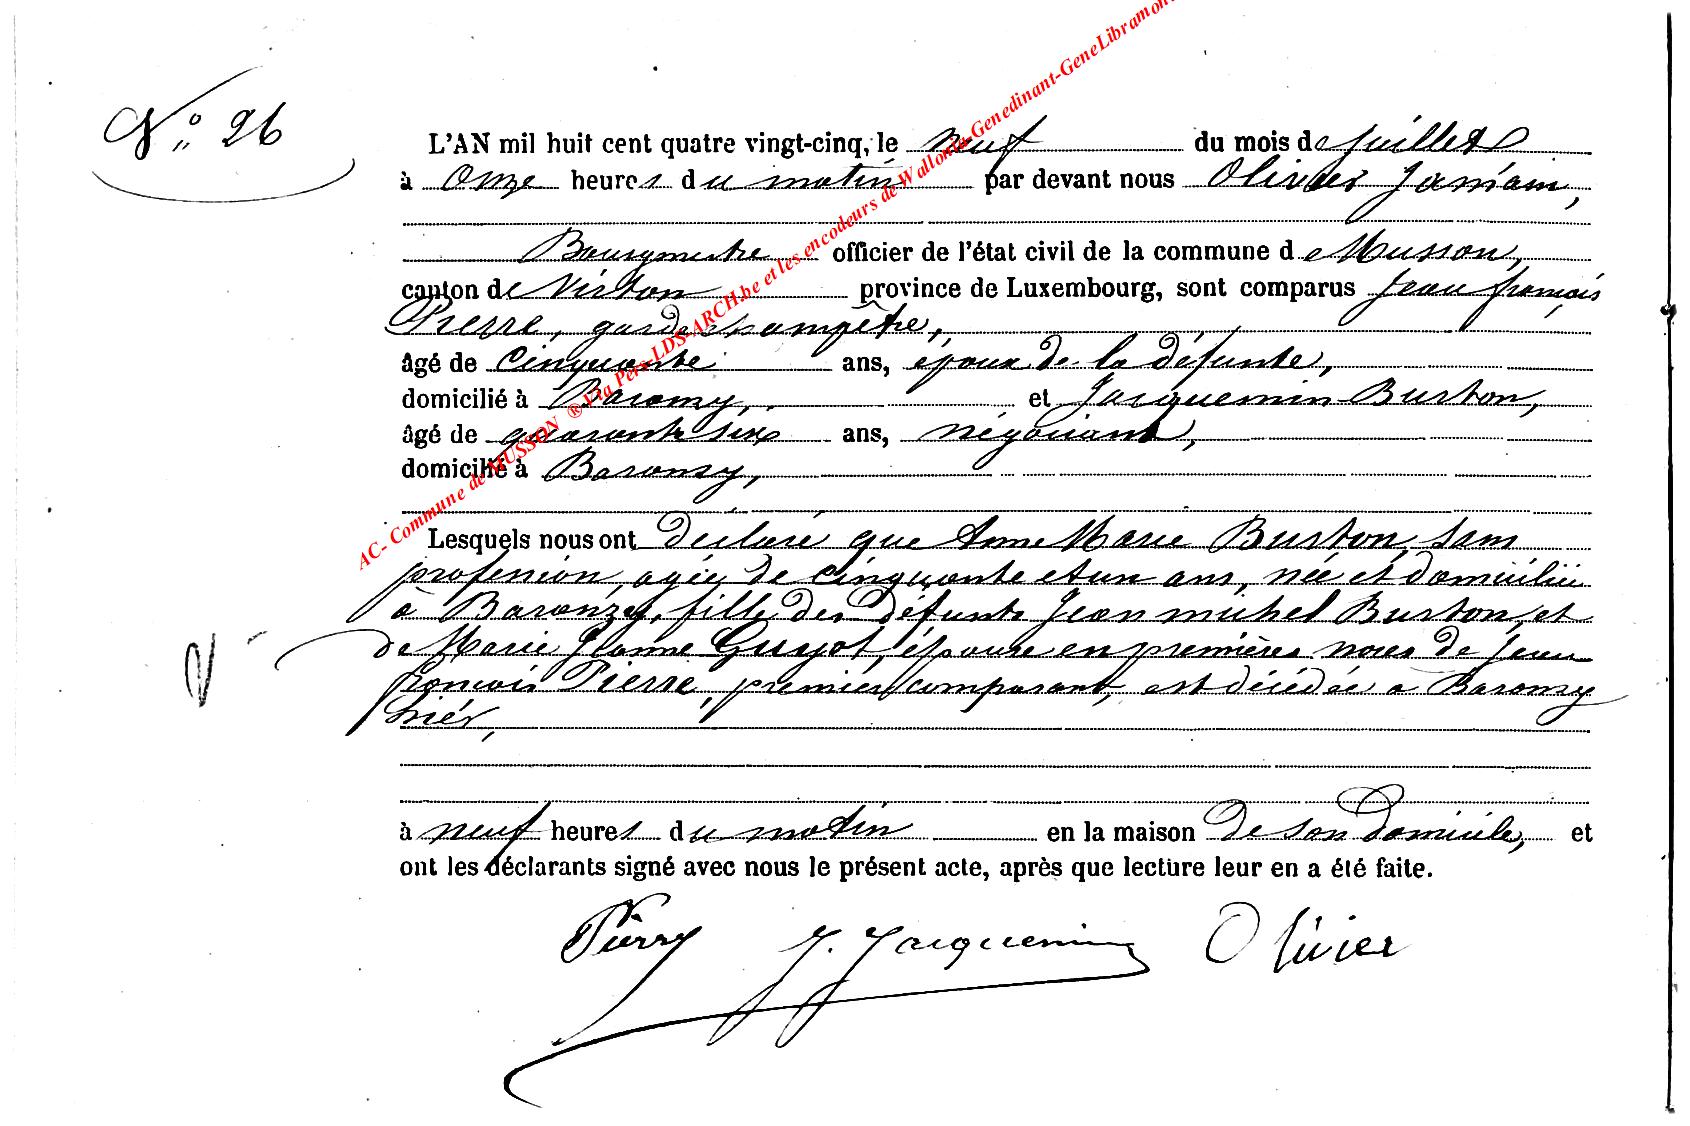 N° 26
L'AN mil huit cent quatre vingt-cinq, le neuf du mois de juillet
à onze heures du matin par devant nous Olivier Jamain,
Bourgmestre officier de l'état civil de la commune de Musson,
canton de Virton province de Luxembourg, sont comparus Jean françois
Pierre, garde champêtre,
âgé de cinquante ans, époux de la défunte,
domicilié à Baranzy, et Jacquemin Burton,
âgé de quarante six ans, négociant,
domicilié à Baranzy,
Lesquels nous ont déclaré que Anne Marie Burton, sans
profession, agée de cinquante et un ans, née et domiciliée
à Baranzy, fille des défunts Jean michel Burton, et
de Marie Jeanne Guyot, épouse en premières noces de Jean
françois Pierre, premier comparant, est décédée à Baranzy
hier,
à neuf heures du matin en la maison de son domicile, et
ont les déclarants signé avec nous le présent acte, après que lecture leur en a été faite.
Pierre J. Jacquemin Olivier
AC- Commune de MUSSON ® Via Pers-LDS-ARCH.be et les encodeurs de Wallonia-Genedinant-GeneLibramon